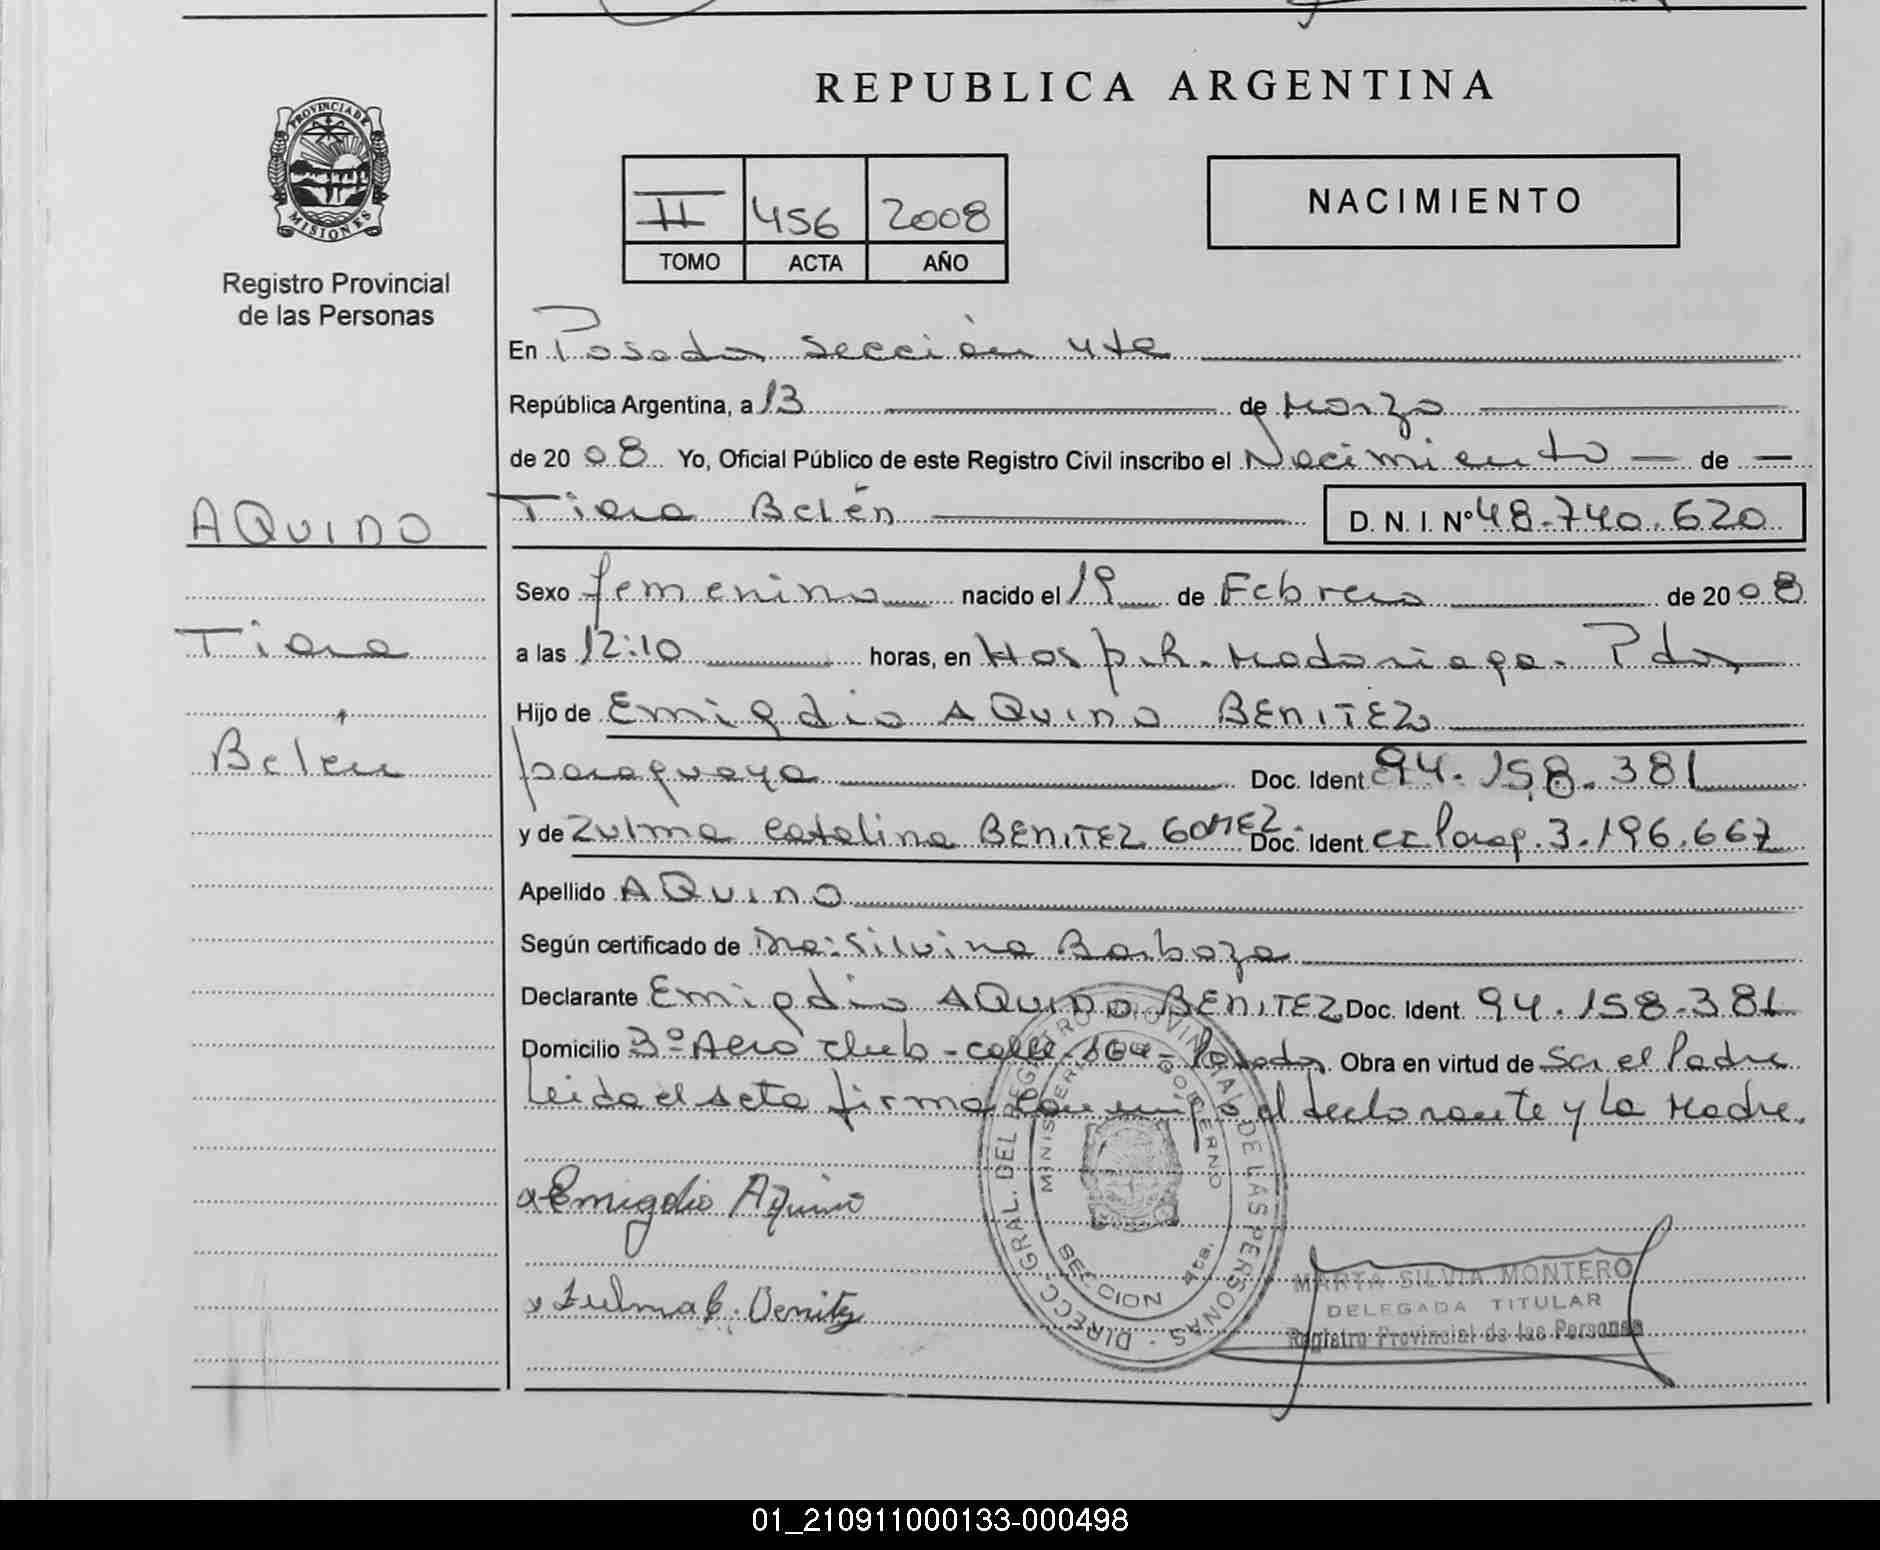 REPUBLICA ARGENTINA
PROVINCIA DE MISIONES
Registro Provincial
de las Personas
II 456 2008
TOMO ACTA AÑO
NACIMIENTO
En Posadas Sección 4ta
República Argentina, a 13 de Marzo
de 2008 Yo, Oficial Público de este Registro Civil inscribo el Nacimiento de
AQUINO
Tiara Belén D. N. I. Nº 48.740.620
Sexo femenino nacido el 19 de Febrero de 2008
Tiara
a las 12:10 horas, en Hospit. Madariaga. Pdas
Hijo de Emigdio AQUINO BENITEZ
Belén
paraguaya Doc. Ident 94.158.381
y de Zulma Catalina BENITEZ GOMEZ. Doc. Ident CI Parag. 3.196.667
Apellido AQUINO
Según certificado de Dra: Silvina Barboza
Declarante Emigdio AQUINO BENITEZ Doc. Ident. 94.158.381
Domicilio Bº Aero club - calle 164 - Posadas Obra en virtud de Ser el Padre
Leida el acta firma conmigo el declarante y la Madre.
Emigdio Aquino
Zulma C. Benitez
DIRECC. GRAL. DEL REGISTRO PROVINCIAL DE LAS PERSONAS
MINISTERIO GOBIERNO
SECCION 4ta.
MARTA SILVIA MONTERO
DELEGADA TITULAR
Registro Provincial de las Personas
01_210911000133-000498